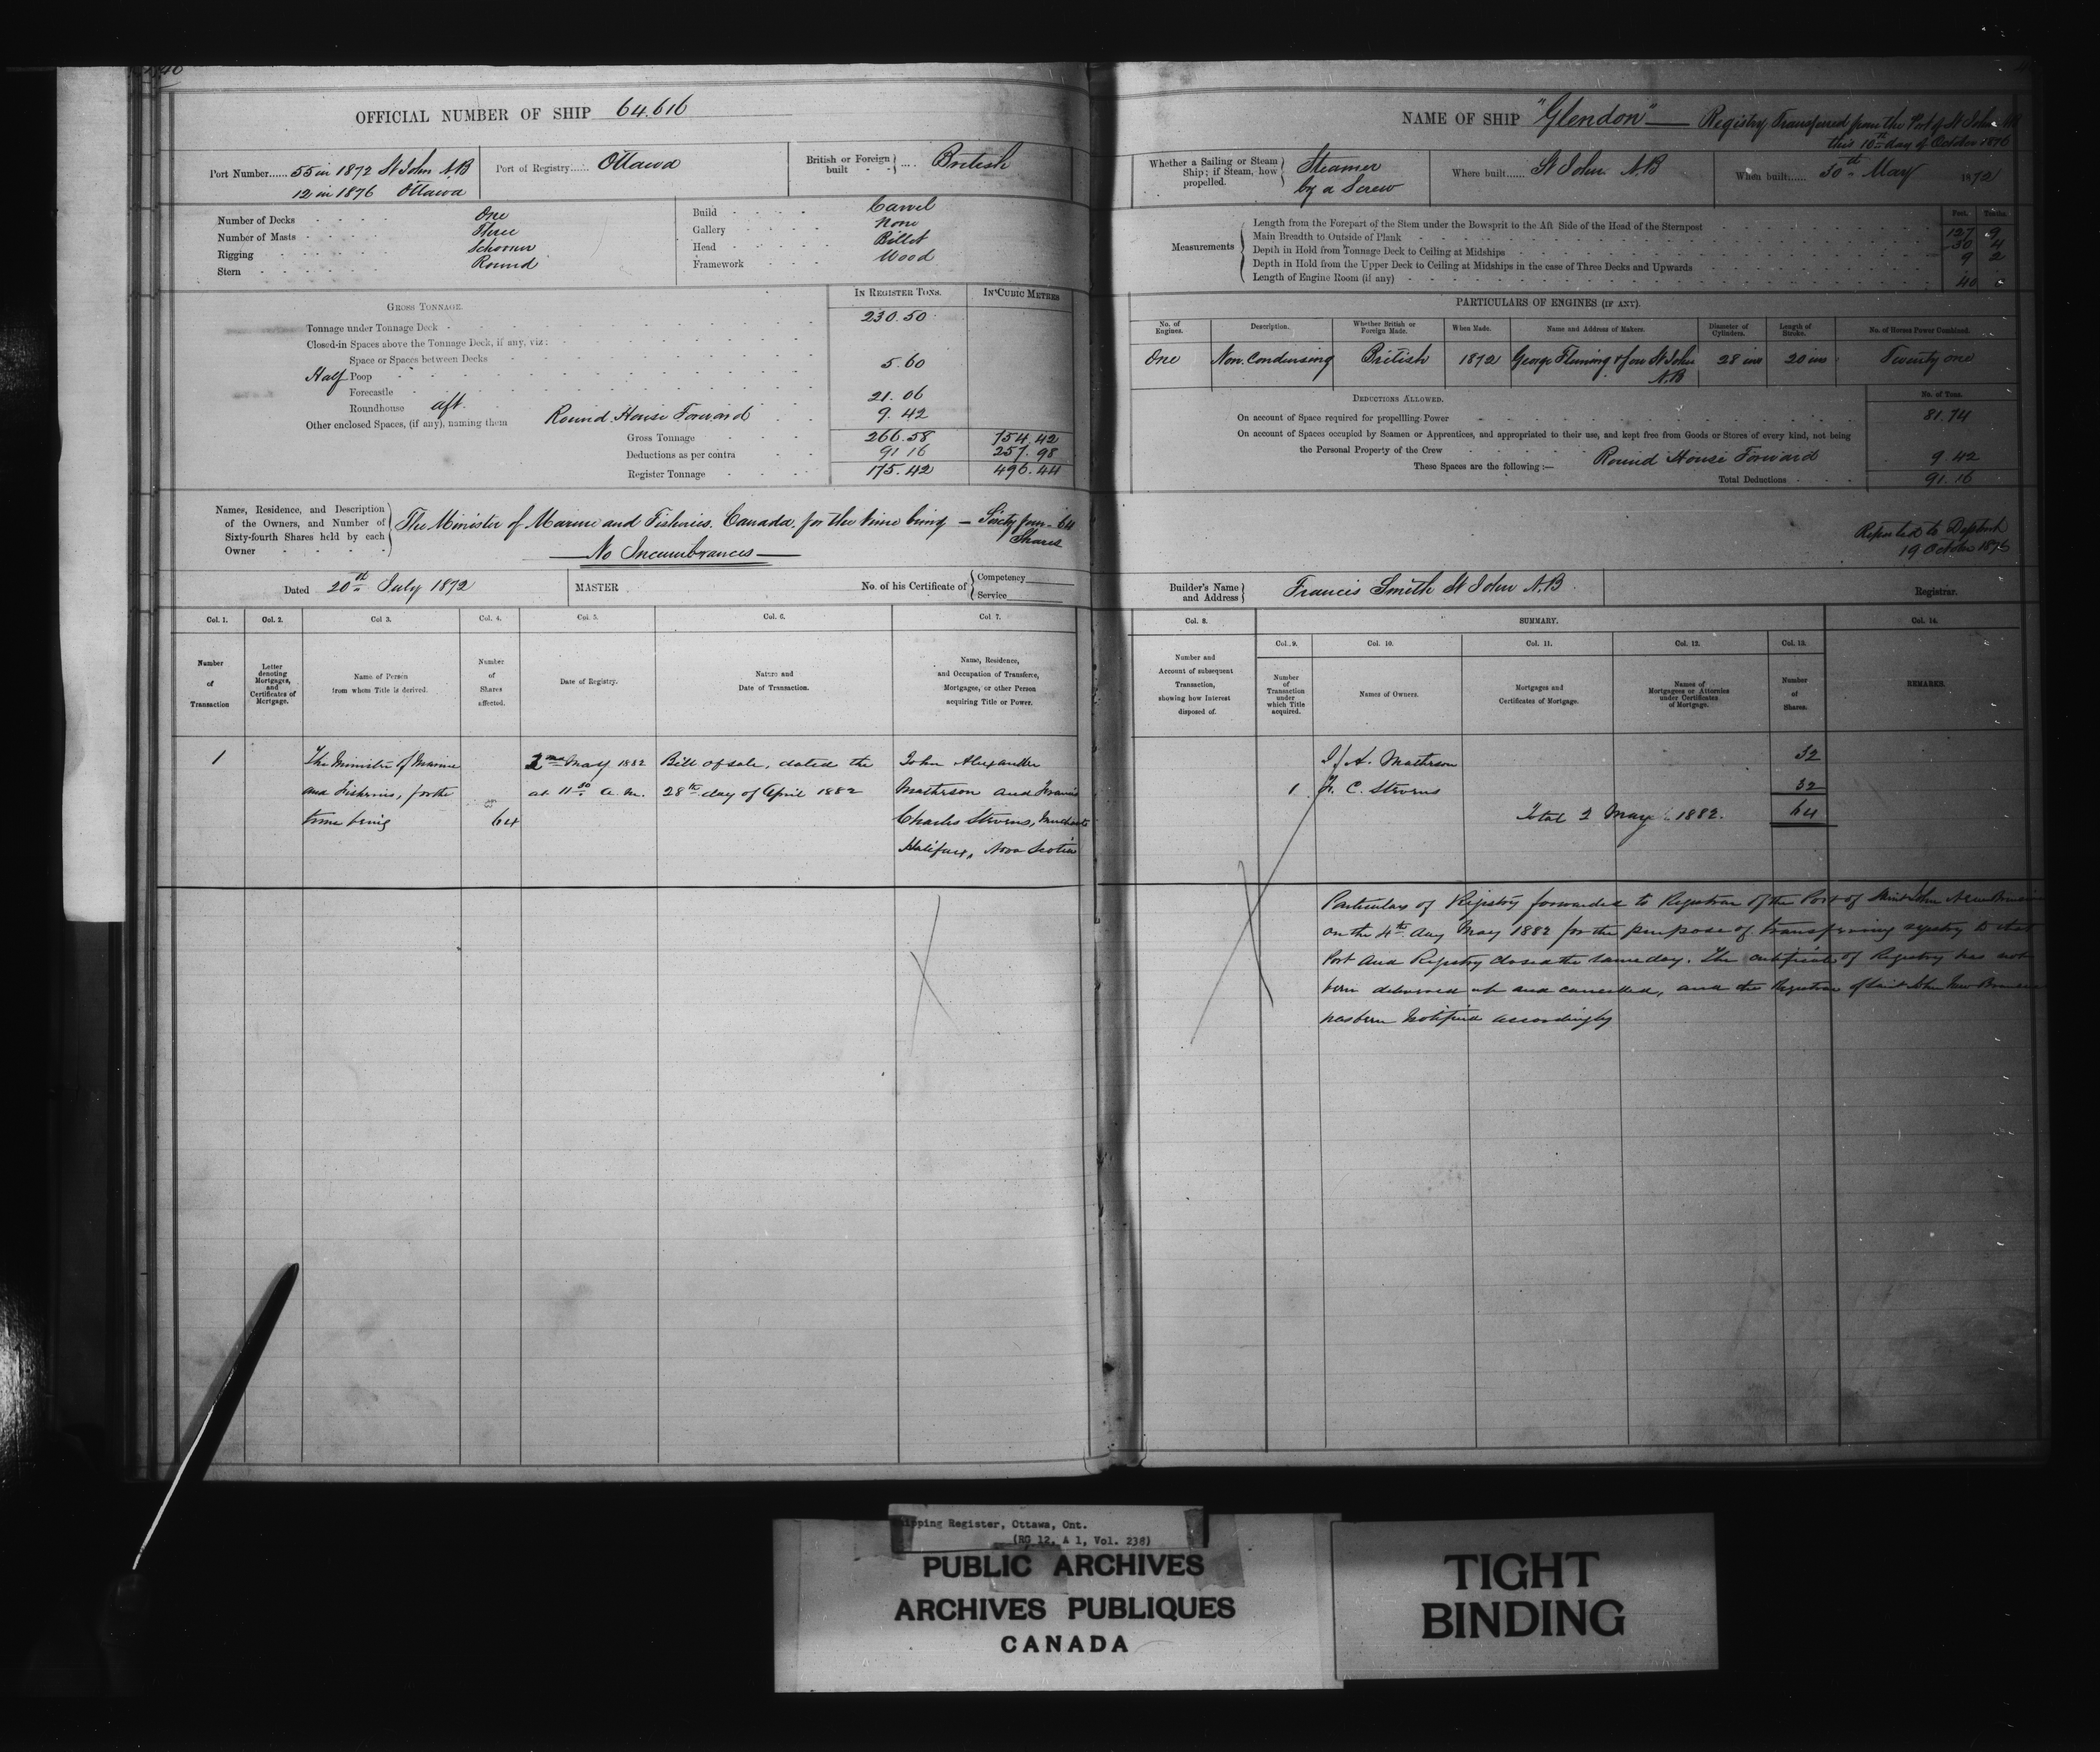 40
OFFICIAL NUMBER OF SHIP 64.616
Port Number...... 55 in 1872 St John N.B
12 in 1876 Ottawa
Port of Registry...... Ottawa
British or Foreign built .... British
Number of Decks One
Number of Masts Three
Rigging Schooner
Stern Round
Build Carvel
Gallery None
Head Billet
Framework Wood
GROSS TONNAGE.
IN REGISTER TONS.
IN CUBIC METRES
Tonnage under Tonnage Deck 230.50
Closed-in Spaces above the Tonnage Deck, if any, viz:
Space or Spaces between Decks
Half Poop 5.60
Forecastle
Roundhouse aft. 21.06
Other enclosed Spaces, (if any), naming them Round House Forward 9.42
Gross Tonnage 266.58 754.42
Deductions as per contra 91 16 257.98
Register Tonnage 175.42 496.44
Names, Residence, and Description
of the Owners, and Number of
Sixty-fourth Shares held by each
Owner
The Minister of Marine and Fisheries. Canada. for the time being — Sixty four - 64
Shares
No Incumbrances
Dated 20th July 1872
MASTER
No. of his Certificate of
Competency
Service
Col. 1.
Col. 2.
Col 3.
Col. 4.
Col. 5.
Col. 6.
Col 7.
Number
of
Transaction
Letter
denoting
Mortgages,
and
Certificates of
Mortgage.
Name of Person
from whom Title is derived.
Number
of
Shares
affected.
Date of Registry.
Nature and
Date of Transaction.
Name, Residence,
and Occupation of Transferee,
Mortgagee, or other Person
acquiring Title or Power.
1
The Minister of Marine
and Fisheries, for the
time being
64
2nd May 1882
at 11 30 a.m.
Bill of sale, dated the
28th day of April 1882
John Alexander
Matheson and Francis
Charles Stevens, Merchants
Halifax, Nova Scotia
NAME OF SHIP "Glendon" — Registry Transferred from the Port of St John NB
this 10th day of October 1876
Whether a Sailing or Steam
Ship; if Steam, how
propelled.
Steamer
by a Screw
Where built...... St John. N.B
When built..... 30th May 1872
Measurements
Feet. Tenths.
Length from the Forepart of the Stem under the Bowsprit to the Aft Side of the Head of the Sternpost 127 9
Main Breadth to Outside of Plank 30 4
Depth in Hold from Tonnage Deck to Ceiling at Midships 9 2
Depth in Hold from the Upper Deck to Ceiling at Midships in the case of Three Decks and Upwards
Length of Engine Room (if any) 40
PARTICULARS OF ENGINES (IF ANY).
No. of Engines.
Description.
Whether British or Foreign Made.
When Made.
Name and Address of Makers.
Diameter of Cylinders.
Length of Stroke.
No. of Horses Power Combined.
One
Non. Condensing
British
1872
George Fleming & Son St John
N.B
28 ins
20 ins
Twenty one
DEDUCTIONS ALLOWED.
No. of Tons.
On account of Space required for propelling Power 81.74
On account of Spaces occupied by Seamen or Apprentices, and appropriated to their use, and kept free from Goods or Stores of every kind, not being
the Personal Property of the Crew
These Spaces are the following :— Round House Forward 9.42
Total Deductions 91.16
Reported to
19 October 1876
Builder's Name
and Address
Francis Smith St John N.B
Registrar.
Col. 8.
SUMMARY.
Col. 14.
Col. 9.
Col. 10.
Col. 11.
Col. 12.
Col. 13.
Number and
Account of subsequent
Transaction,
showing how Interest
disposed of.
Number
of
Transaction
under
which Title
acquired.
Names of Owners.
Mortgages and
Certificates of Mortgage.
Names of
Mortgagees or Attornies
under Certificates
of Mortgage.
Number
of
Shares.
REMARKS.
J. A. Matheson 32
1 F. C. Stevens 32
Total 2 May 1882. 64
Particulars of Registry forwarded to Registrar of the Port of Saint John New Brunswick
on the 4th day May 1882 for the purpose of transferring registry to that
Port and Registry closed the same day. The certificate of Registry has not
been delivered up and cancelled, and the Registrar of Saint John New Brunswick
has been notified accordingly
Shipping Register, Ottawa, Ont.
(RG 12, A 1, Vol. 238)
PUBLIC ARCHIVES
ARCHIVES PUBLIQUES
CANADA
TIGHT
BINDING